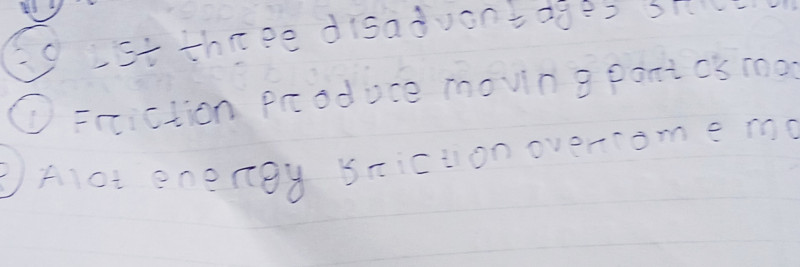 List three disadvantages
① Friction produce moving part of
Alot energy friction overcome